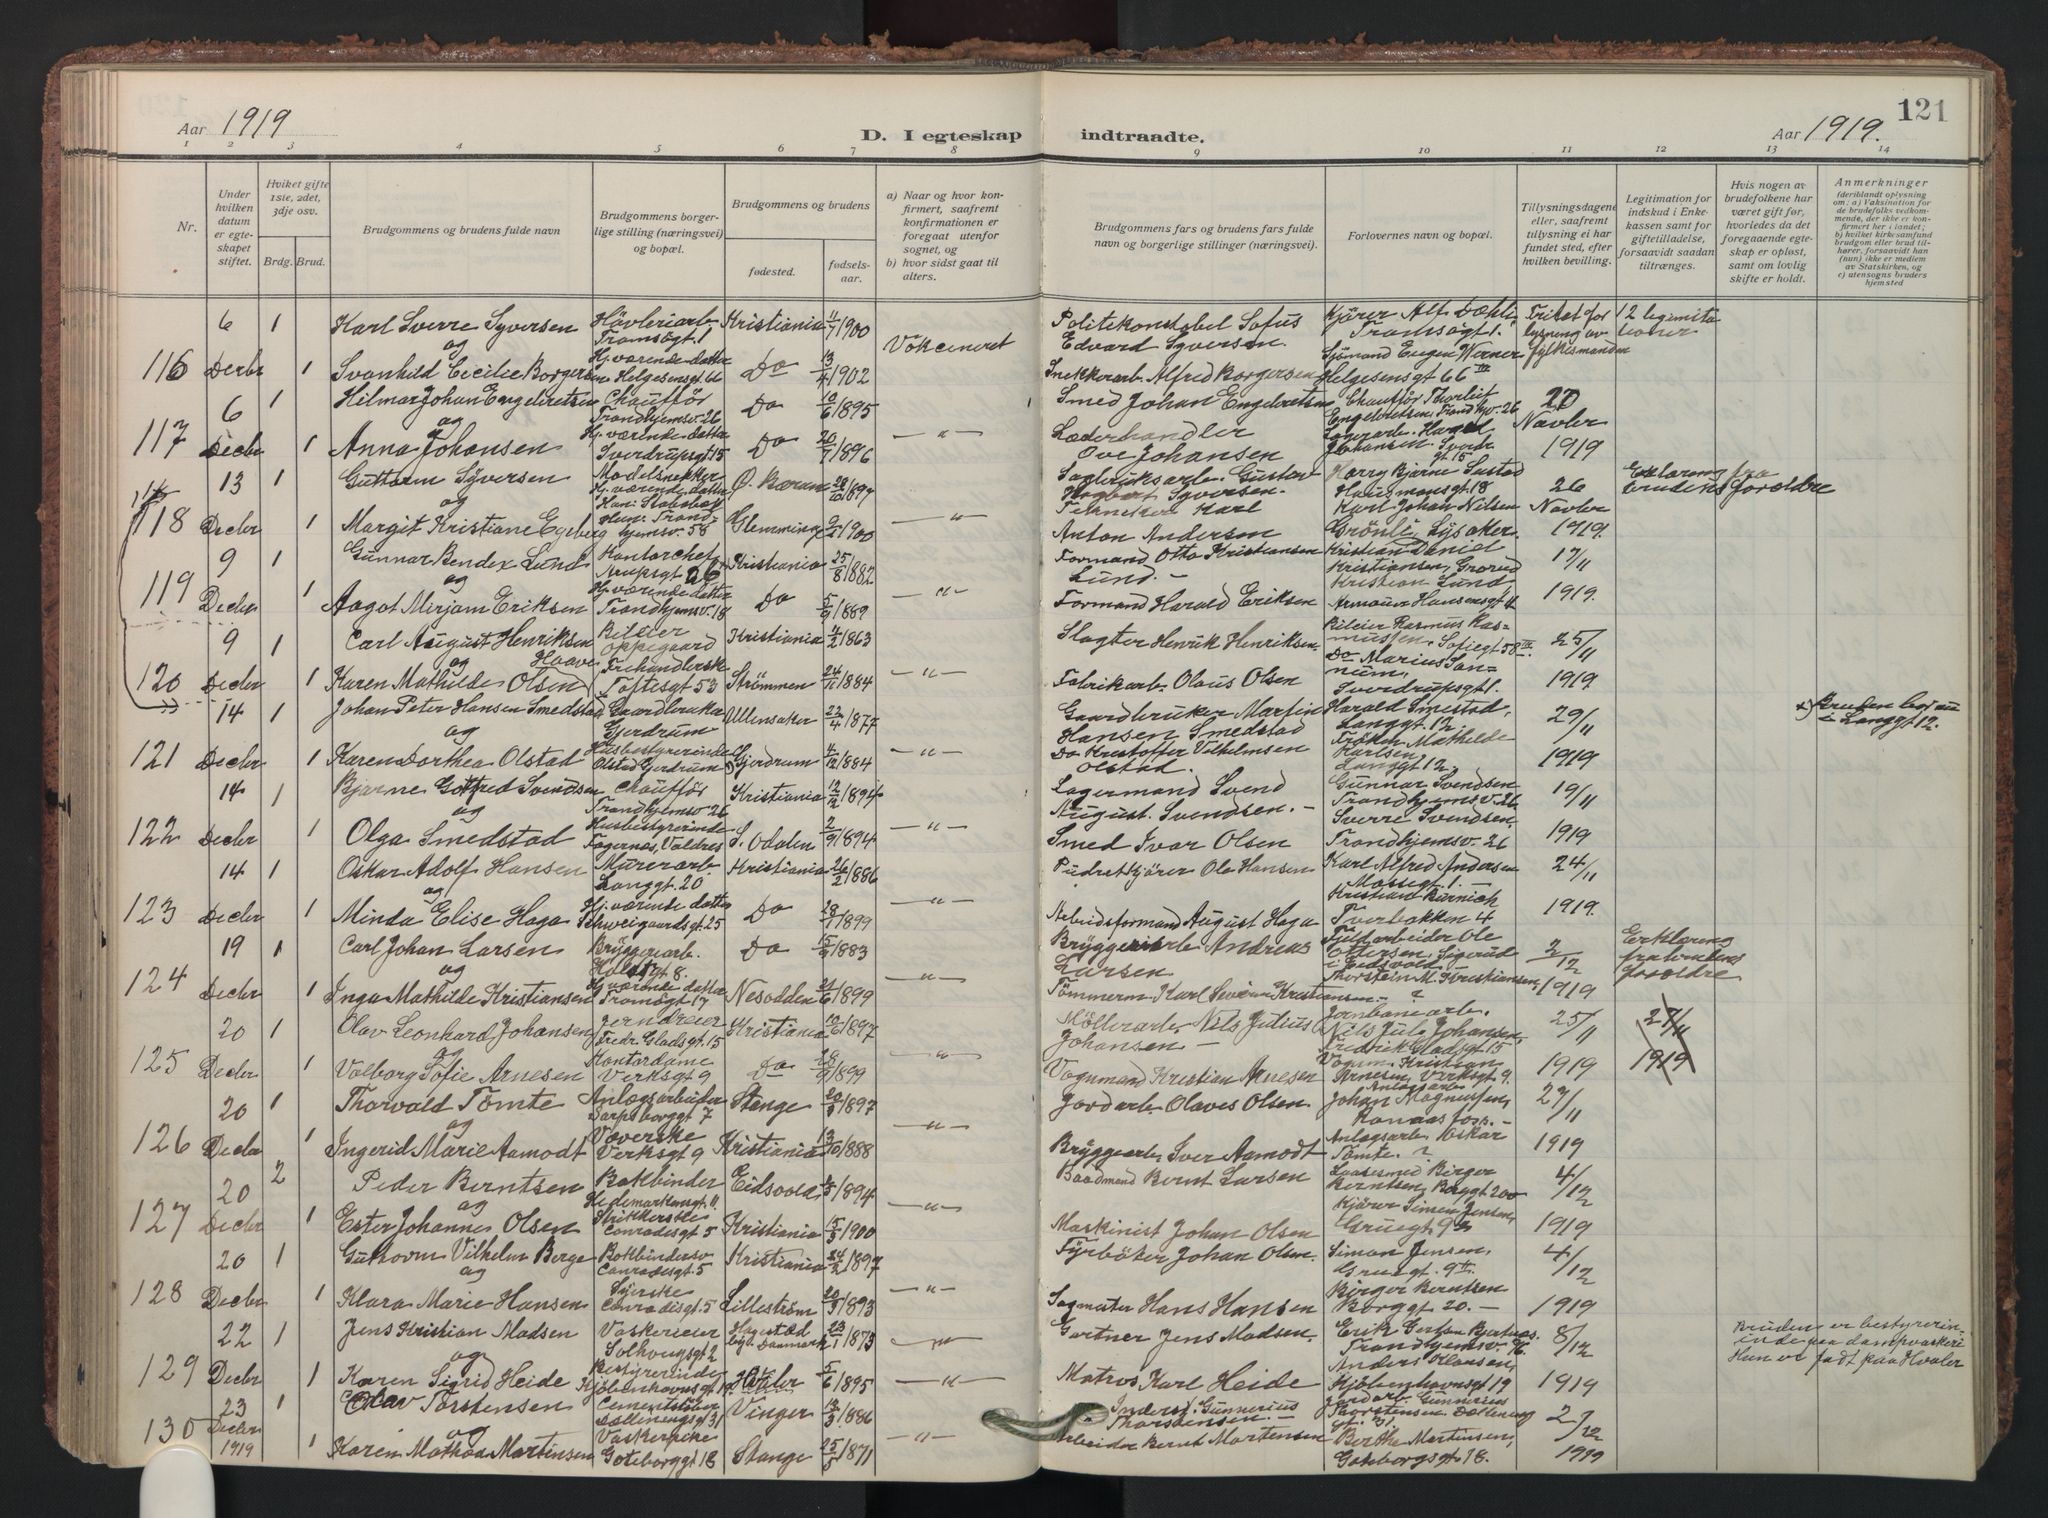 121
Aar 1919
D. I egteskap indtraadte.
Aar 1919.
1 2 3 4 5 6 7 8 9 10 11 12 13 14
Nr.
Under hvilken datum er egteskapet stiftet.
Hviket gifte 1ste, 2det, 3dje osv.
Brdg. Brud.
Brudgommens og brudens fulde navn
Brudgommens borgerlige stilling (næringsvei) og bopæl.
Brudgommens og brudens
fødested. fødselsaar.
a) Naar og hvor konfirmert, saafremt konfirmationen er foregaat utenfor sognet, og
b) hvor sidst gaat til alters.
Brudgommens fars og brudens fars fulde navn og borgerlige stillinger (næringsvei).
Forlovernes navn og bopæl.
Tillysningsdagene eller, saafremt tillysning ei har fundet sted, efter hvilken bevilling.
Legitimation for indskud i Enkekassen samt for giftetilladelse, forsaavidt saadan tiltrænges.
Hvis nogen av brudefolkene har været gift før, hvorledes da det foregaaende egteskap er opløst, samt om lovlig skifte er holdt.
Anmerkninger (deriblandt oplysning om: a) Vaksination for de brudefolks vedkommende, der ikke er konfirmert her i landet; b) hvilket kirkesamfund brudgom eller brud tilhører, forsaavidt han (hun) ikke er medlem av Statskirken, og c) utensogns bruders hjemsted
6 1 Karl Sverre Syversen Høvleriarb Kristiania 11/7 1900 Politikonstabel Sofus Kjører Alf Dæhli Fritat for 12 legimita
og Tromsøgt 1 Vakcineret Edvard Syversen. Tromsøgt 1. lysning av tioner
116 Decbr 1 Svanhild Cecilie Borgersen Hj. værende datter Helgesensgt 66 Do 13/4 1902 Snekkerarb. Alfred Borgersen Sjømand Eugen Werner Helgesensgt 66 III fylkesmanden
6 1 Hilmar Johan Engebretsen Chauffør Trondhjemsv. 26 Do 10/6 1895 Smed Johan Engebretsen Chauffør Thorleif Engebretsen, Trondhjv. 26 20
117 Decbr 1 og Anna Johansen Hj. værende datter Sverdrupsgt 15 Do 20/7 1896 — " — Læderhandler Ove Johansen Lagerarb. Johansen. Sverdr gt. 15 Novbr 1919
13 1 Guttorm Syversen Modelsnekker Ø. Bærum 1897 Gustav Syversen. Harry Bjarne Hausmansgt. 18 26 Erklæring fra brudens foreldre
118 Decbr 1 og Margit Kristiane Egeberg Trondhjemsv. 58 Glemminge 1900 — " — Tekniker Karl Anton Andersen Karl Johan Nilsen Grønli, Lysaker Novbr 1919.
9 1 Gunnar Bendex Lund Kontorchef Kristiania 25/8 1882 Formand Otto Kristiansen Lund. — Kristian Daniel Kristiansen, Grorud 17/11
119 Decbr 1 og Aagot Mirjam Eriksen Hj. værende datter Trondhjemsv. 18 Do 5/9 1889 — " — Formand Harald Eriksen Kristian Lund, Armauer Hansensgt 4 1919.
9 1 Carl August Henriksen Haave Bileier Oppegaard Kristiania 4/2 1863 Slagter Henrik Henriksen Bileier Rasmus Rasmussen, Sofiegt 58 III. 25/11
120 Decbr 1 og Karen Mathilde Olsen Toftesgt 53 Strømmen 24/11 1884 — " — Fabrikarb. Olaus Olsen Do Marius Sannum, Sverdrupsgt 1. 1919.
14 1 Johan Peter Hansen Smedstad Gaardbruker Gjerdrum Ullensaker 22/4 1877 Gaardbruker Martin Hansen Smedstad Harald Smestad, Langgt. 12 29/11 x) Bruden bor nu i Langgt 12.
121 Decbr 1 og Karen Dorthea Olstad Husbestyrerinde Olstad Gjerdrum Gjerdrum 4/12 1884 — " — Do Kristoffer Vilhelmsen Olstad. Frøken Mathilde Karlsen Langgt 12. 1919
14 1 Bjarne Gotfred Svendsen Chauffør Trondhjemsv. 26 Kristiania 12/2 1894 Lagermand Svend August Svendsen. — Gunnar Svendsen Trondhjemsv. 26 19/11
122 Decbr 1 og Olga Smedstad Husbestyrerinde Fagernæs, Valdres S. Odalen 2/9 1894 — " — Smed Ivar Olsen Sverre Svendsen, Trondhjemsv. 26 1919
14 1 Oskar Adolf Hansen Murerarb. Langgt. 20 Kristiania 26/2 1886 Pudretkjører Ole Hansen Karl Alfred Andersen Mossegt. 1. — 24/11
123 Decbr 1 og Minda Elise Haga Hj. værende datter Schweigaardsgt. 25 Do 28/7 1899 — " — Arbeidsformand August Haga Kristian Tverbakken 4 1919.
19 1 Carl Johan Larsen Bryggeriarb. Holstgt 8. Do 15/9 1883 Bryggeriarb Andreas Larsen Ole Ottersen, i Eidsvold 2/12 Erklæring foreldre
124 Decbr 1 og Inga Mathilde Kristiansen Hj. værende datter Tromsøgt 17 Nesodden 21/6 1899 — " — Tømmerm. Karl Severin Kristiansen — Thorstein M. Kristiansen, ? 1919
20 1 Olav Leonhard Johansen Jerndreier Fredr. Gladsgt. 15 Kristiania 10/6 1897 Møllerarb. Nils Julius Johansen — Jernbanearb. Nils Julo Johansen, Fredrik Gladsgt 15 25/11 27/11
125 Decbr 1 og Valborg Sofie Arnesen Kontordame Verksgt 9 Do 28/9 1899 — " — Vognmand Kristian Arnesen Vognm. Kristian Arnesen, Verksgt 9. 1919 1919
20 1 Thorvald Tømte Anlægsarbeider Sarpsborggt 7 Stange 20/3 1897 Jordarb. Olaves Olsen. Anlægsarb Johan Magnussen, Ranaasfoss. — 27/11
126 Decbr 1 og Ingerid Marie Aamodt Væverske Verksgt 9 Kristiania 13/10 1888 — " — Bryggeriarb Iver Aamodt Anlægsarb. Oskar Tømte. ? 1919
20 2 Peder Berntsen Bokbinder Hedemarkensgt 11. Eidsvold 1894 Baadmand Bernt Larsen Laasesmed Birger Berntsen, Borggt 20 4/12
127 Decbr 1 og Ester Johanne Olsen Strikkerske Conradisgt 5 Kristiania 15/5 1900 — " — Maskinist Johan Olsen Kjører Simen Jensen, Gruegt 9 1919
20 1 Guttorm Vilhelm Berge Bokbindersv Conradisgt. 5 Kristiania 24/2 1897 Fyrbøter Johan Olsen. Simon Jensen, Gruegt. 9 II. 4/12
128 Decbr 1 og Klara Marie Hansen Syerske Conradisgt. 5 Lillestrøm 20/3 1893 — " — Sagmester Hans Hansen Birger Berntsen Borggt 20. — 1919
22 1 Jens Kristian Madsen Vaskerieier Solhougsgt 2 Danmark 23/1 1873 Gartner Jens Madsen. Erik Trondhjemsv. 8/12 Bruden er bestyrerinde paa dampvaskeri Hun er født paa Hvaler
129 Decbr 1 og Karen Sigrid Heide Bestyrerinde Kjøbenhavnsgt 19 Hvaler 5/6 1895 — " — Matros Karl Heide Anders Klausen, Kjøbenhavnsgt 19 1919
23 1 Olav Torstensen Cementstøber Dælenenggt 31 Vinger 12/3 1886 Gunnerius Thorstensen. — Gunnerius Thorstensen Dælenenggt. 31. 2/12
130 Decbr 1919 1 og Karen Mathea Martinsen Vaskerpike Goteborggt 18 Stange 25/5 1871 — " — Arbeider Bernt Martensen Berthe Martinsen, Goteborgsgt. 18. 1919